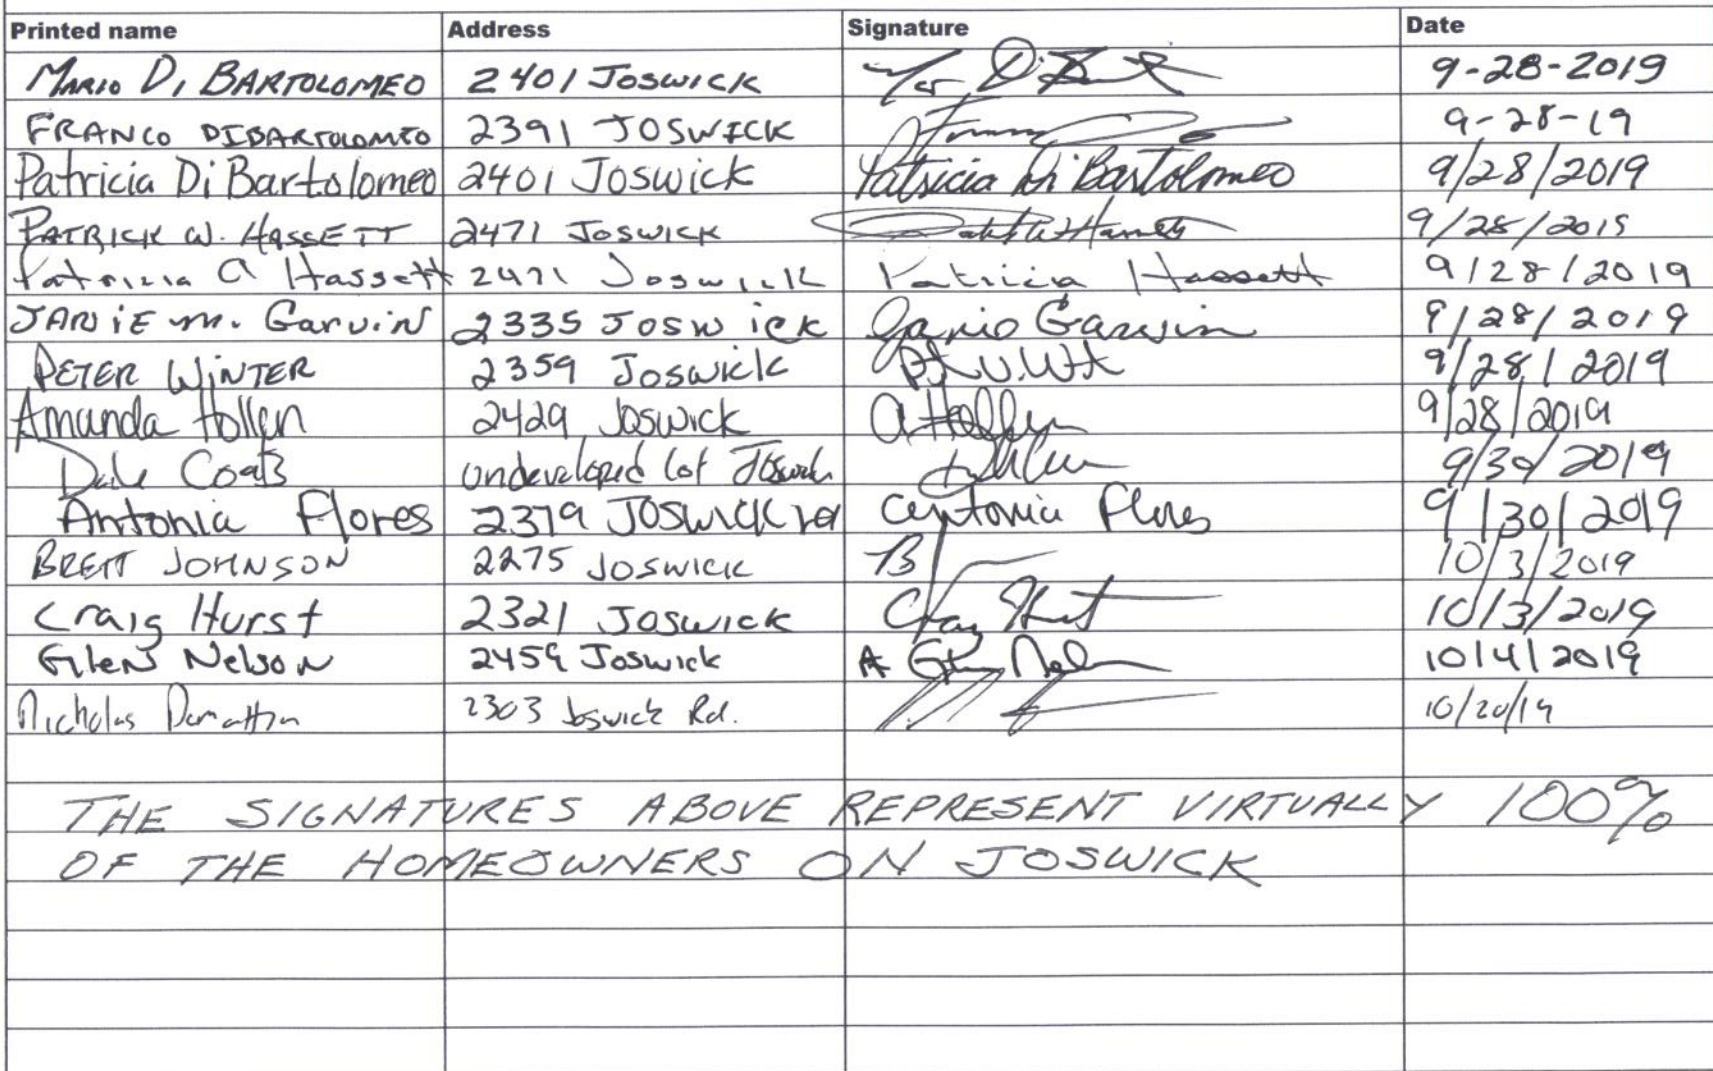 Printed name Address Signature Date
MARIO DI BARTOLOMEO 2401 JOSWICK 9-28-2019
FRANCO DIBARTOLOMEO 2391 JOSWICK 9-28-19
Patricia DiBartolomeo 2401 Joswick Patricia Di Bartolomeo 9/28/2019
PATRICK W. HASSETT 2471 JOSWICK 9/28/2019
Patricia A Hassett 2471 Joswick Patricia Hassett 9/28/2019
JANIE M. GarviN 2335 Joswick Janie Garvin 9/28/2019
PETER WiNTER 2359 Joswick 9/28/2019
Amanda Hollen 2429 Joswick A Hollen 9/28/2019
Dale undeveloped lot Joswick 9/30/2019
Antonia Flores 2379 Joswick rd Antonia Flores 9/30/2019
BRETT JOHNSON 2275 JOSWICK B 10/3/2019
Craig Hurst 2321 JOSWICK Craig Hurst 10/3/2019
GleN NelsoN 2459 Joswick A Glen Nelson 10/4/2019
Nicholas 2303 Joswick Rd. 10/20/19
THE SIGNATURES ABOVE REPRESENT VIRTUALLY 100%
OF THE HOMEOWNERS ON JOSWICK